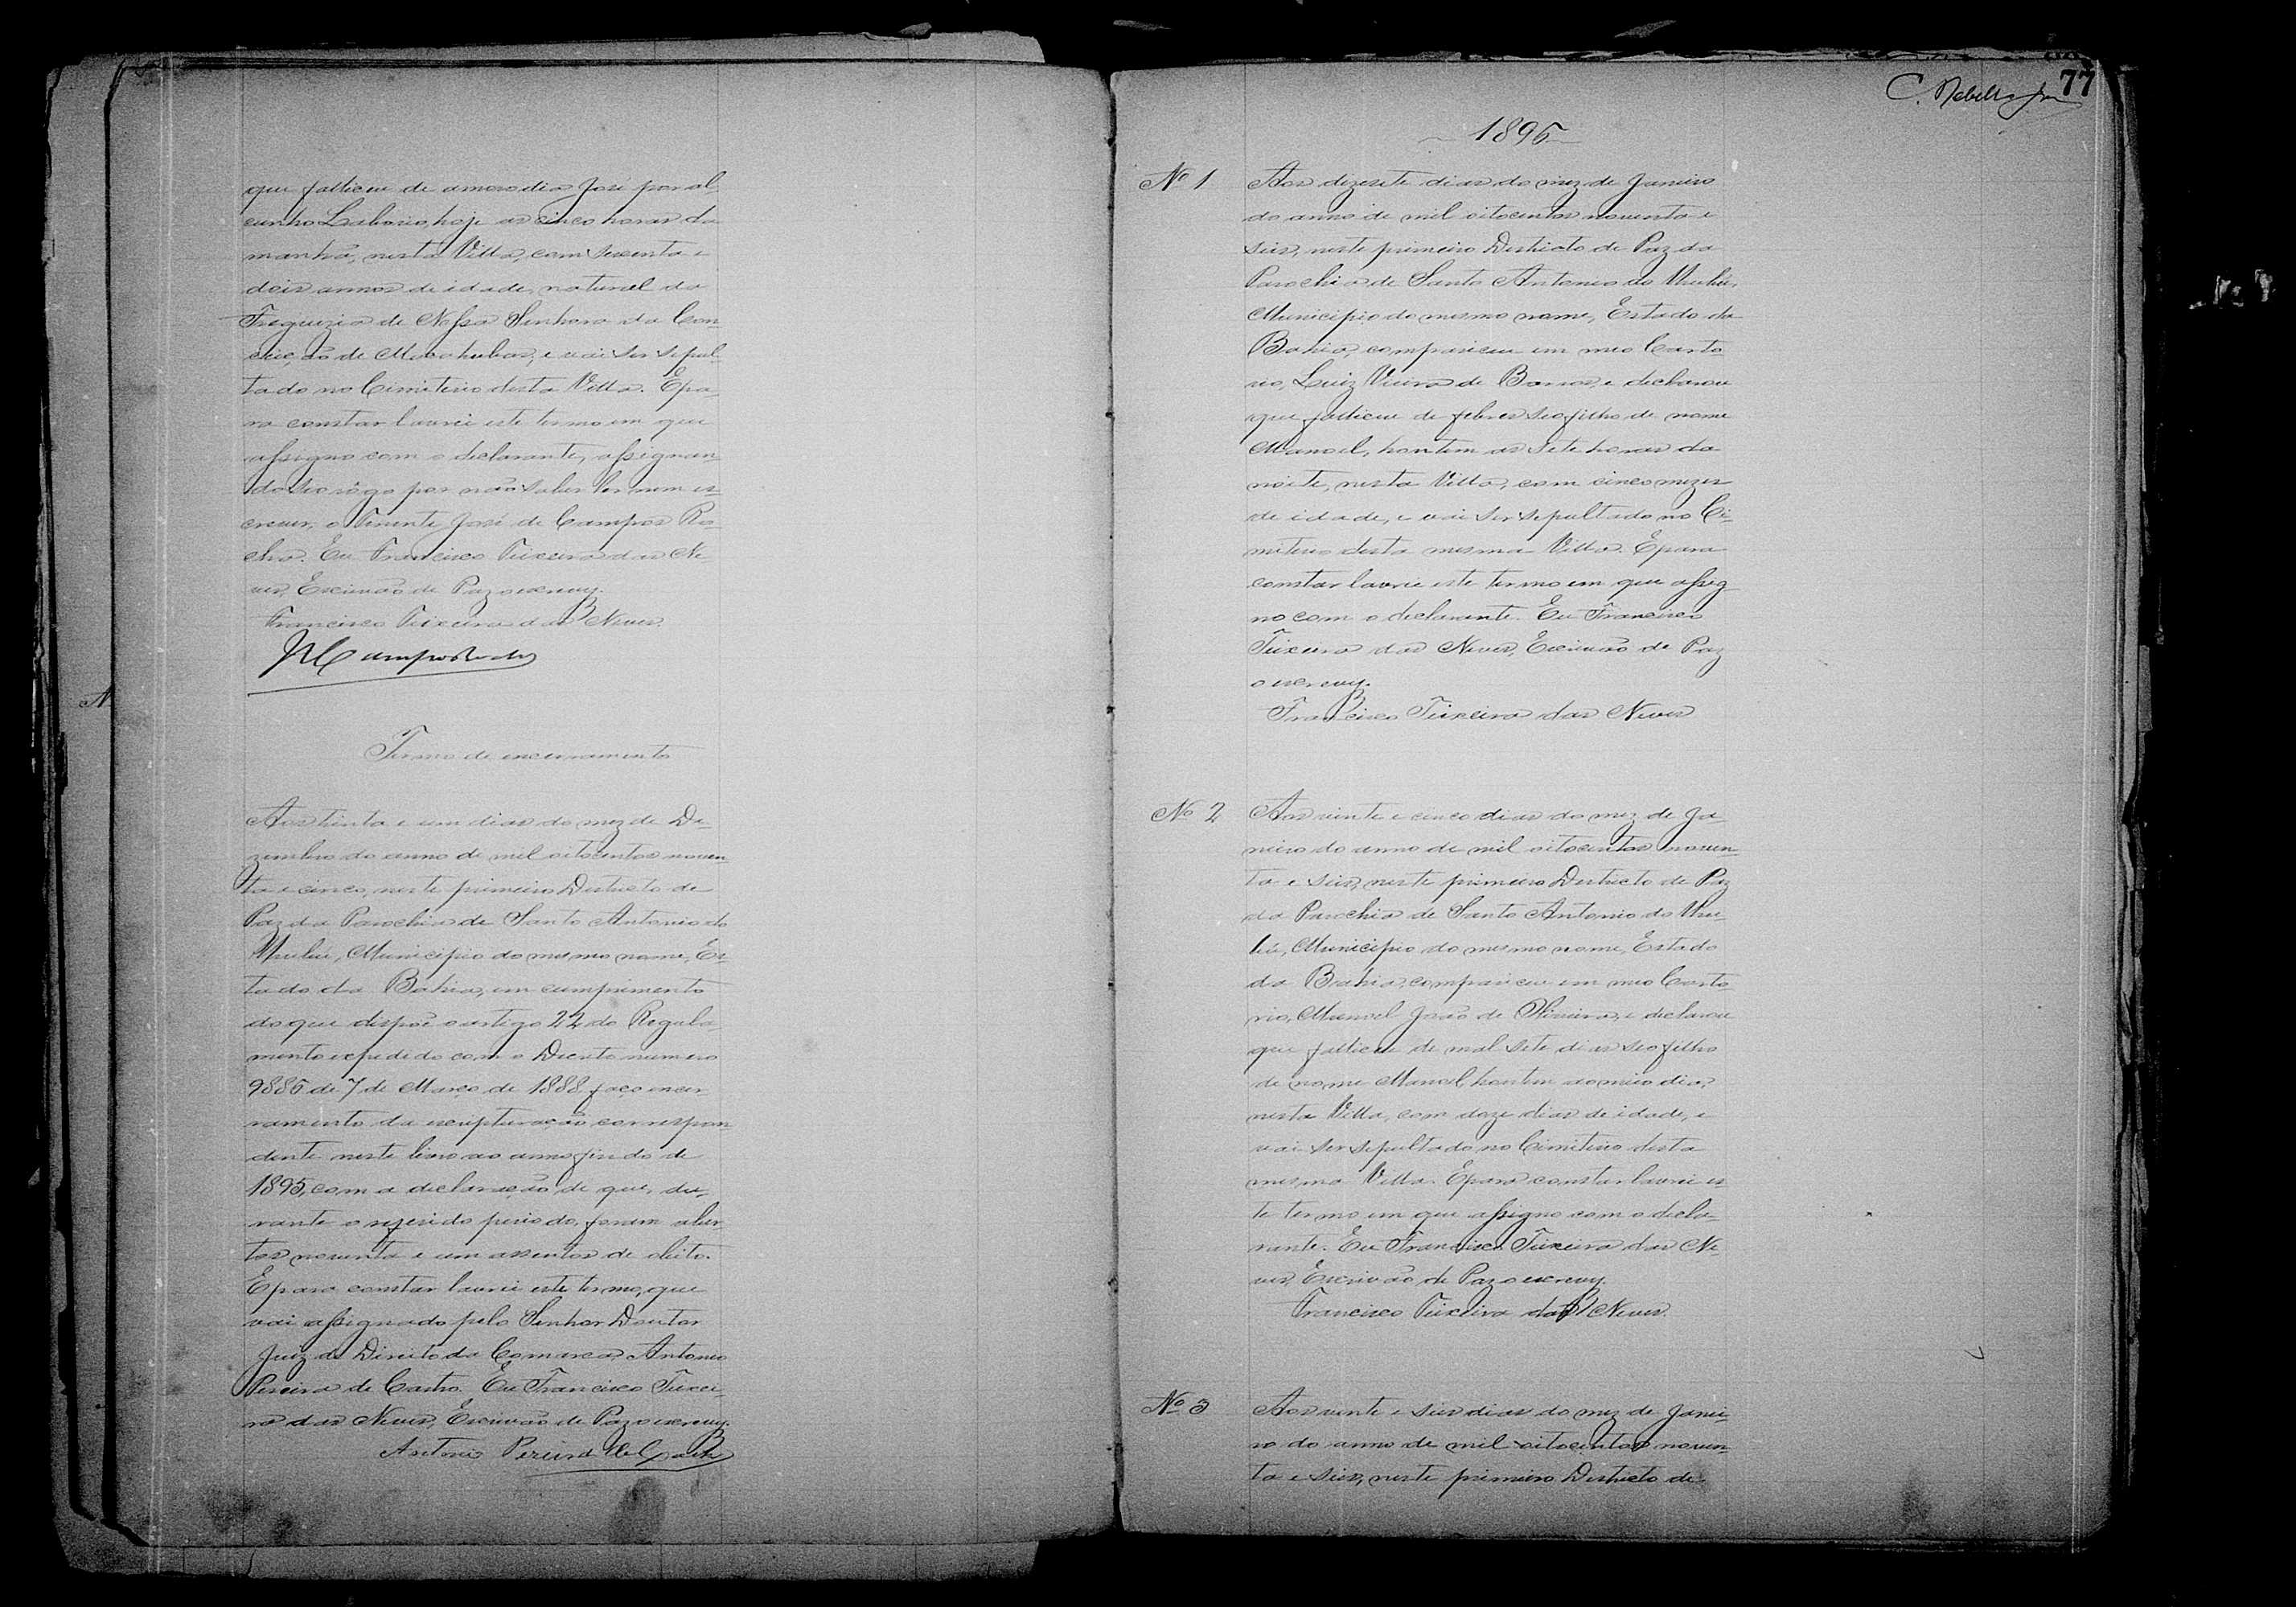 que falleceu de amorodia José por al
cunho Laborio, hoje as cinco horas da
manhã, nesta Villa, com sessenta e
dois annos de idade, natural da
Freguezia de Nossa Senhora da Con
ceição de Macahubas, e vai ser sepul
tado no Cimiterio desta Villa. E pa
ra constar lavrei este termo em que
assigno com o declarante, assignan
do a seo rôgo por não saber ler nem es
crever, o Tenente José de Campos Ro
cha. Eu Francisco Teixeira das Ne
ves, Escrivão de Paz o escrevy.
Francisco Teixeira das Neves.
Termo de encerramento
Aos trinta e um dias do mez de De
zembro do anno de mil oitocentos noven
ta e cinco, neste primeiro Destricto de
Paz da Parochia de Santo Antonio do
Urubú, Municipio do mesmo nome, Es
tado da Bahia, em cumprimento
do que dispõe o artigo 22 do Regula
mento expedido com o Decreto numero
9886 de 7 de Março de 1888, faço encer
ramento da escripturação correspon
dente neste livro ao anno findo de
1895, com a declaração de que, du
rante o referido periodo, foram aber
tos noventa e um assentos de obito.
E para constar lavrei este termo, que
vai assignado pelo Senhor Doutor
Juiz de Direito da Comarca, Antonio
Pereira de Castro. Eu Francisco Teixei
ra das Neves, Escrivão de Paz o escrevy.
Antonio Pereira de Castro
77
1896
Nº 1 Aos dezesete dias do mez de Janeiro
do anno de mil oitocentos noventa e
seis, neste primeiro Destricto de Paz da
Parochia de Santo Antonio do Urubú,
Municipio do mesmo nome, Estado da
Bahia, compareceu em meo Carto
rio, Luiz Vieira de Barros, e declarou
que falleceu de febres seo filho de nome
Manoel, hontem as sete horas da
noite, nesta Villa, com cinco mezes
de idade, e vai ser sepultado no Ci
miterio desta mesma Villa. E para
constar lavrei este termo em que assig
no com o declarante. Eu Francisco
Teixeira das Neves, Escrivão de Paz
o escrevy.
Francisco Teixeira das Neves
Nº 2 Aos vinte e cinco dias do mez de Ja
neiro do anno de mil oitocentos noven
ta e seis, neste primeiro Destricto de Paz
da Parochia de Santo Antonio do Uru
bú, Municipio do mesmo nome, Estado
da Bahia, compareceu em meo Carto
rio, Manoel João de Oliveira, e declarou
que falleceu de mal sete dias seo filho
de nome Manoel, hontem ao meio dia,
nesta Villa, com doze dias de idade, e
vai ser sepultado no Cimiterio desta
mesma Villa. E para constar lavrei es
te termo em que assigno com o decla
rante. Eu Francisco Teixeira das Ne
ves, Escrivão de Paz o escrevy.
Francisco Teixeira das Neves.
Nº 3 Aos vinte e seis dias do mez de Janei
ro do anno de mil oitocentos noven
ta e seis, neste primeiro Destricto de